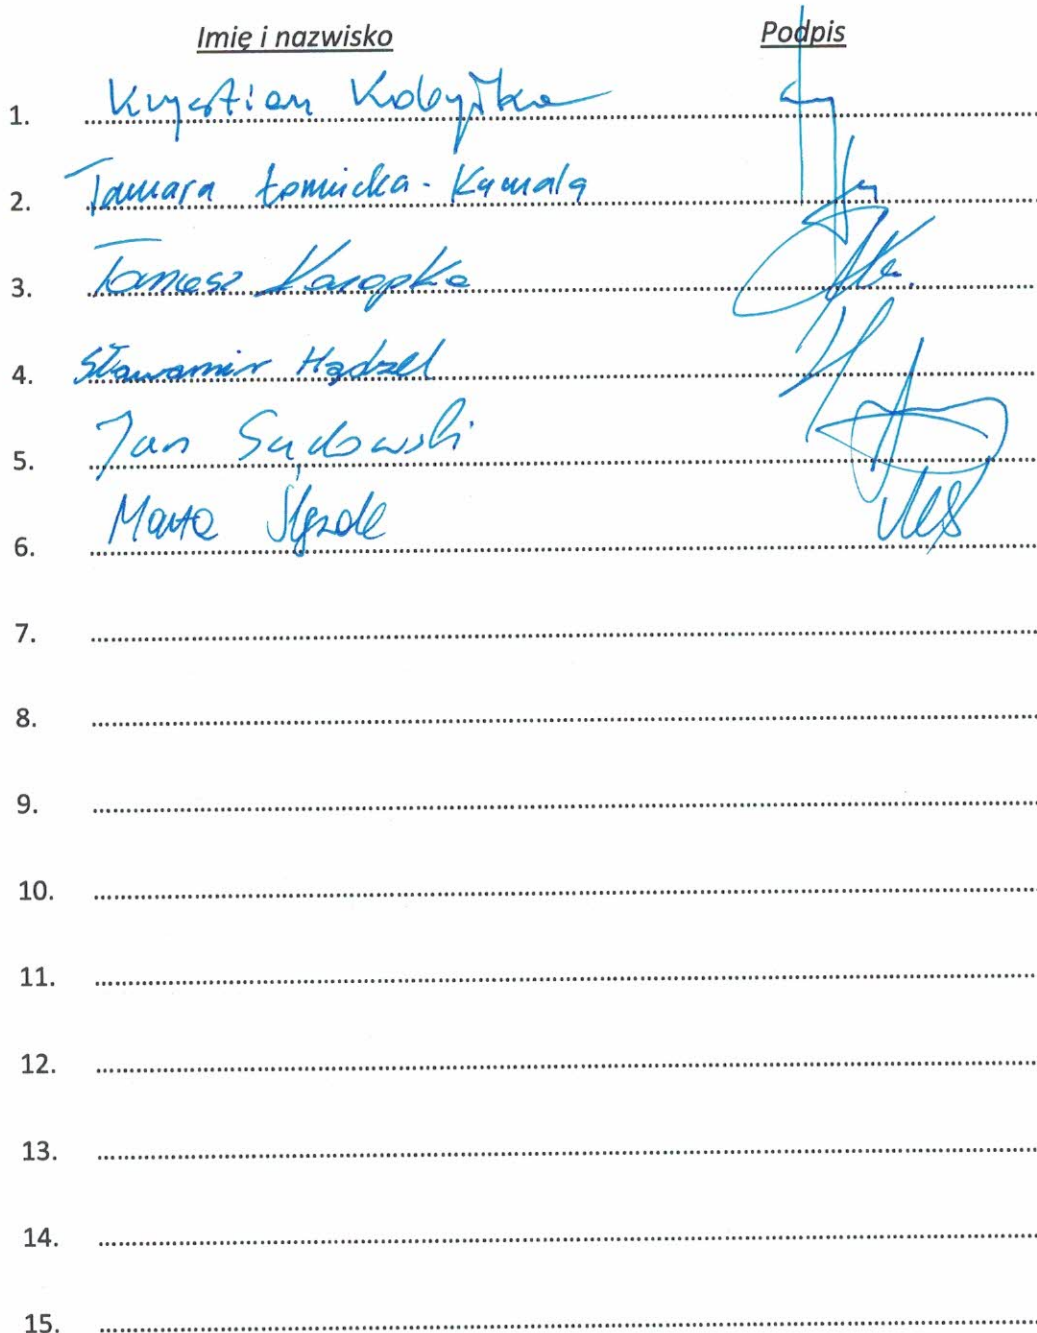 Imię i nazwisko Podpis
1. Krystian Kobyłka
2. Tamara Łomnicka-Kamala
3. Tomasz Konopka
4. Sławomir Hądzel
5. Jan Sadowski
6. Marta
7.
8.
9.
10.
11.
12.
13.
14.
15.